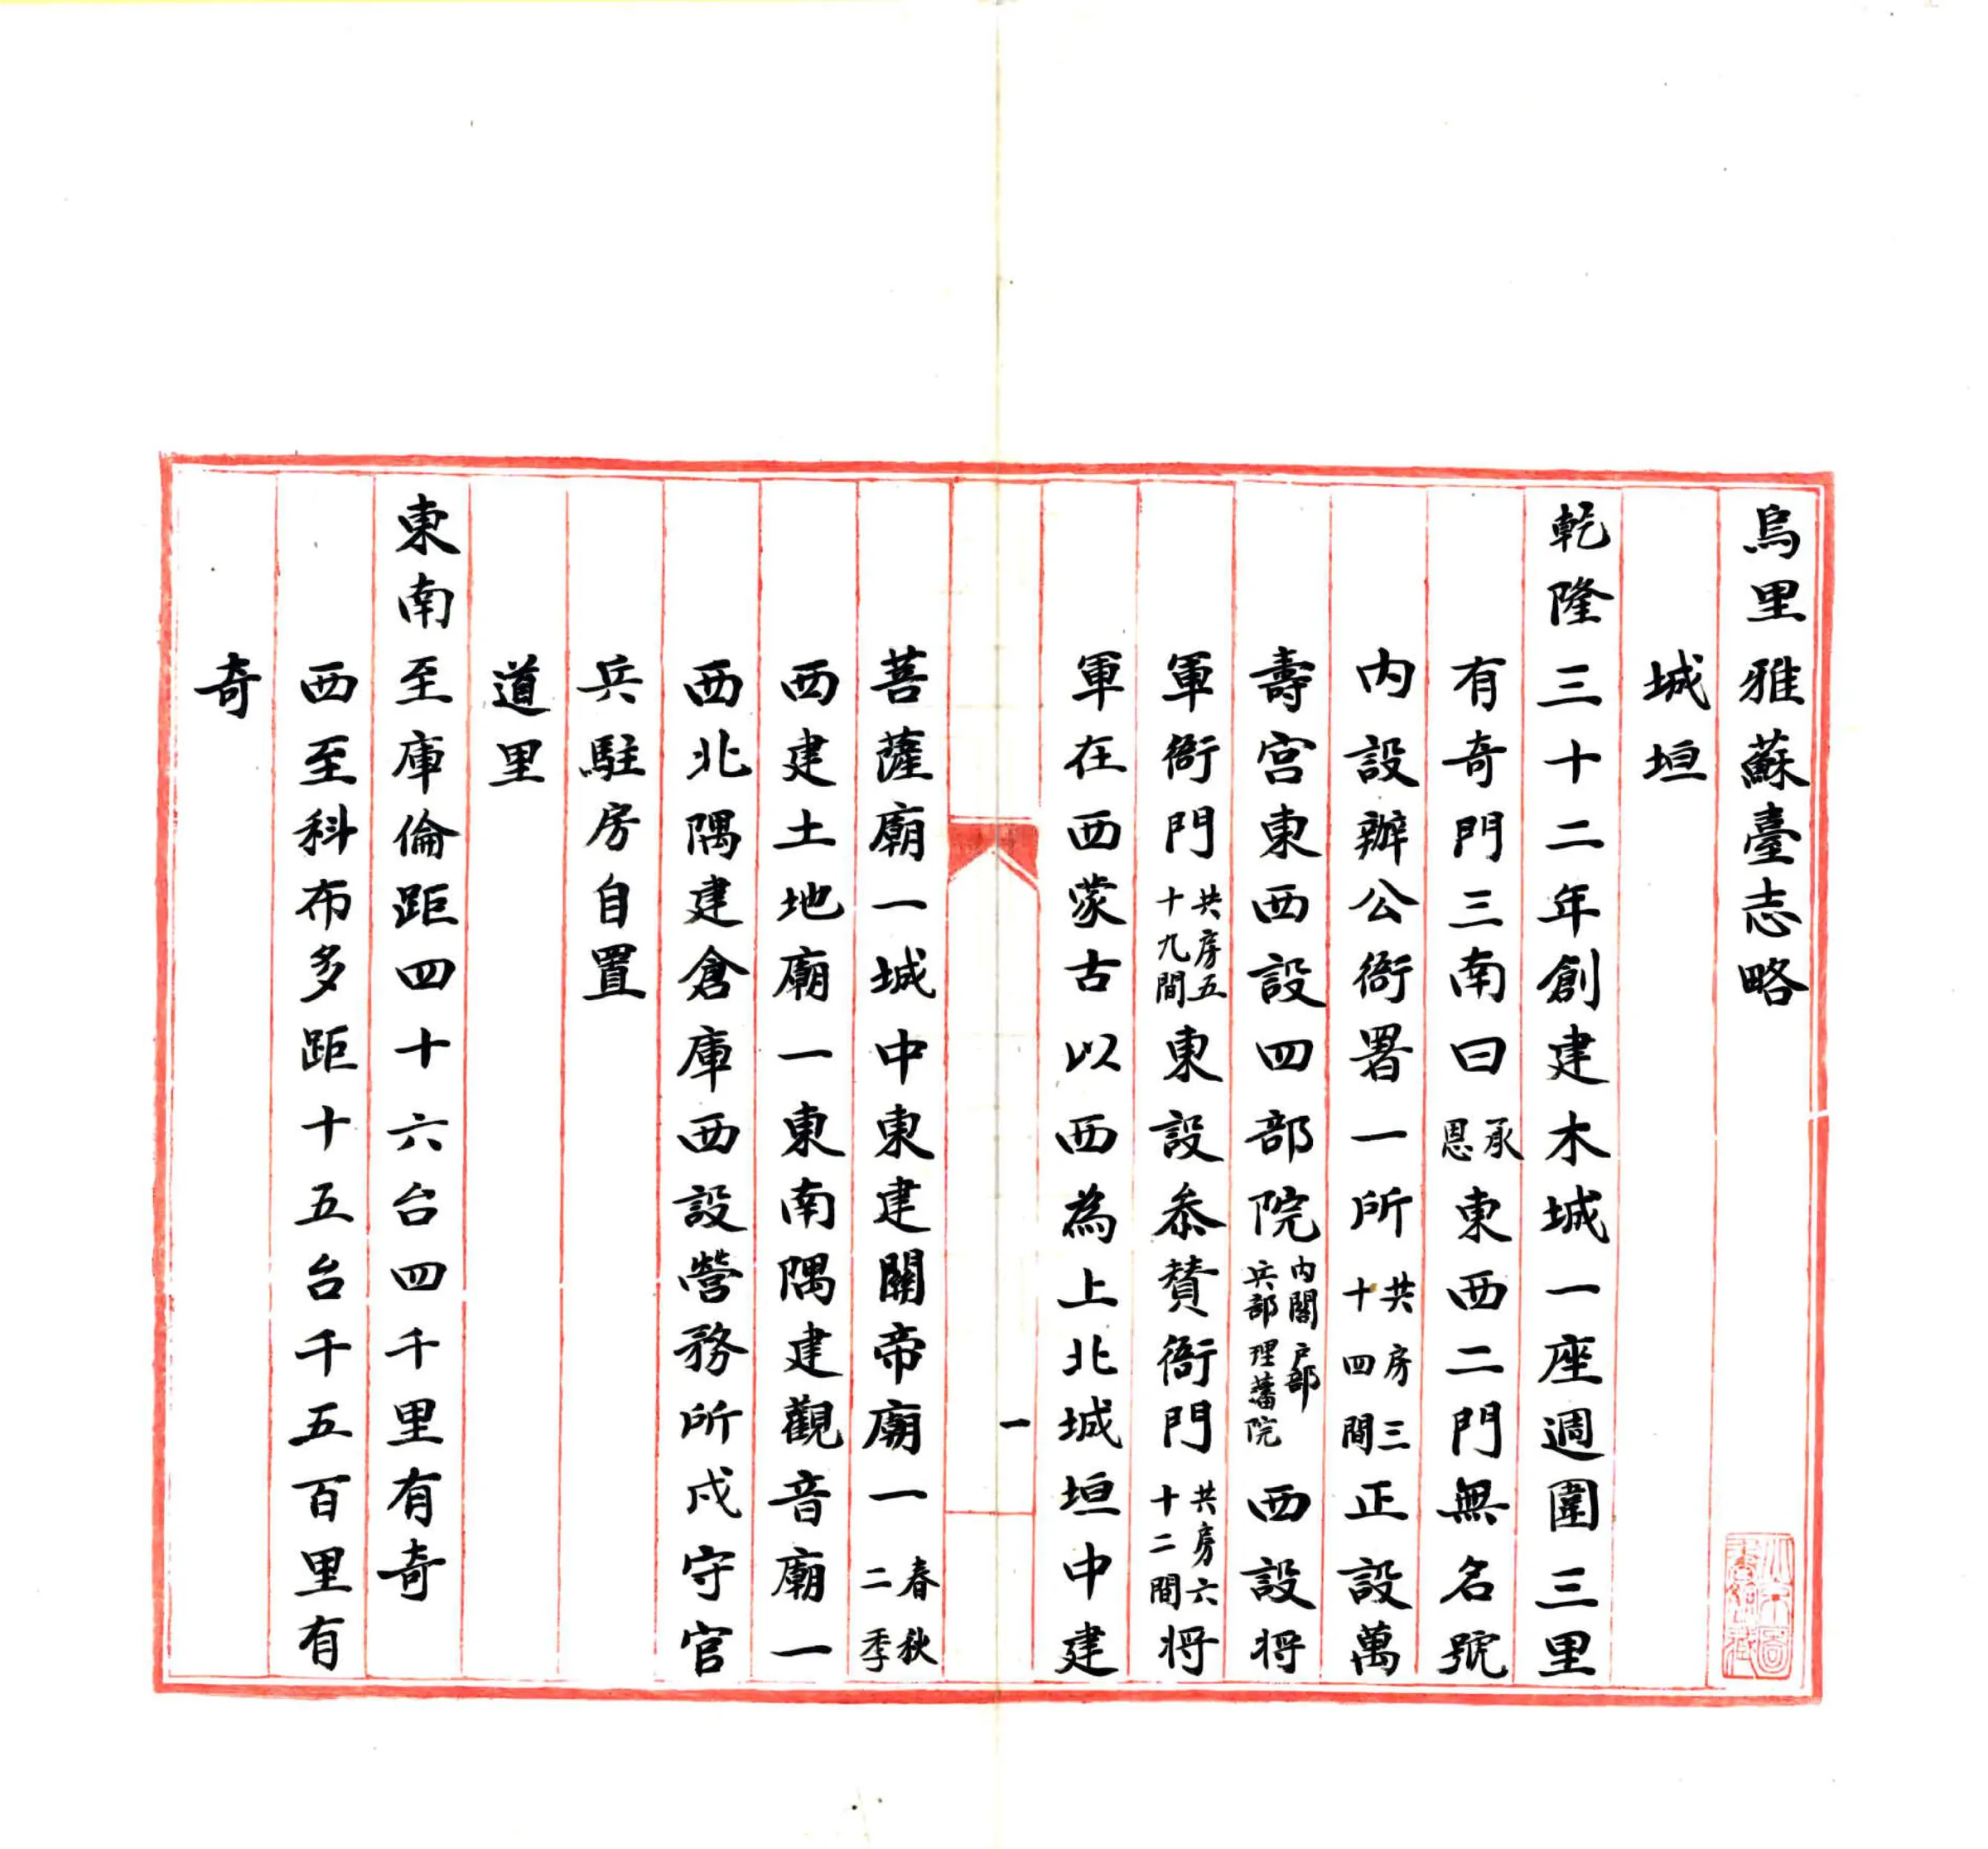 烏里雅蘇臺志略
城垣
乾隆三十二年創建木城一座週圍三里
有奇門三南曰承恩東西二門無名號
內設辦公衙署一所共房三十四間正設萬
壽宮東西設四部院內閣戶部兵部理藩院西設将
軍衙門共房五十九間東設叅贊衙門共房六十二間将
軍在西蒙古以西為上北城垣中建
一
菩薩廟一城中東建關帝廟一春秋二季
西建土地廟一東南隅建觀音廟一
西北隅建倉庫西設營務所戍守官
兵駐房自置
道里
東南至庫倫距四十六台四千里有奇
西至科布多距十五台千五百里有
奇